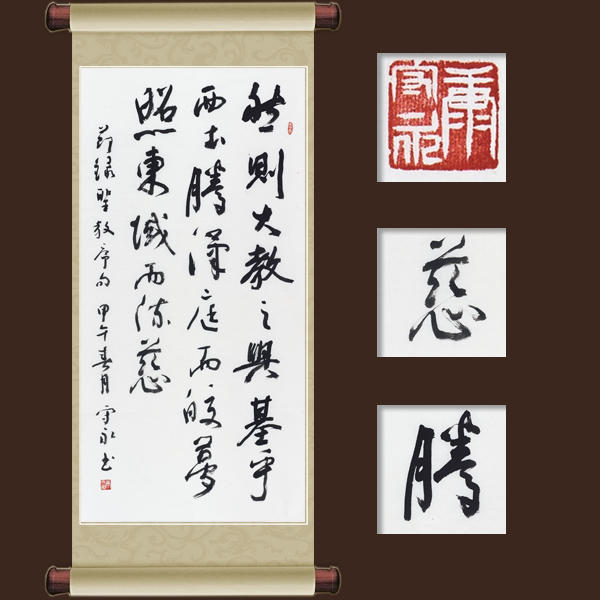 然則大教之興基乎
西土騰漢庭而皎夢
照東域而流慈
節錄聖教序句 甲午春月 守永书
康守永
慈
騰